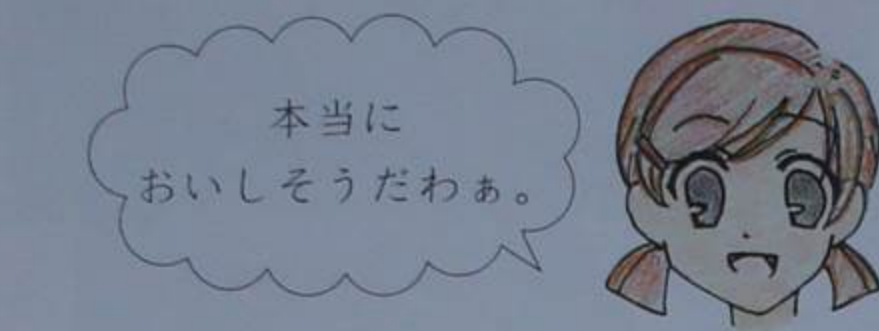 本当に
おいしそうだわぁ。